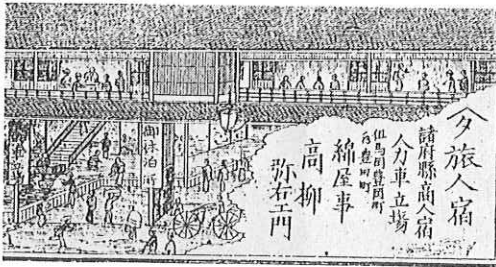 旅人宿
諸府縣商人宿
人力車立場
但馬国豊岡町
綿屋事
高柳
弥右エ門
御休泊所